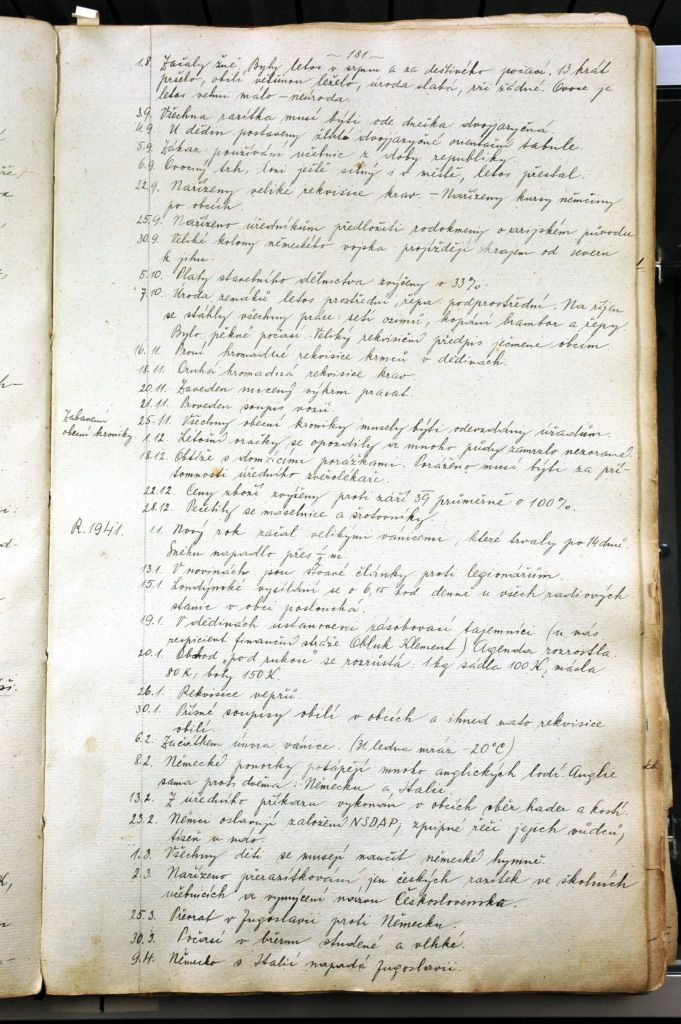 — 181 —
1.8. Začaly žně. Byly letos v srpnu a za deštivého počasí. 13 krát
pršelo, obilí většinou leželo, úroda slabá, rží žádné. Ovoce je
letos velmi málo – neúroda.
3.9. Všechna razítka musí býti ode dneška dvojjazyčná
4.9. U dědin postaveny žluté dvojjazyčné orientační tabule.
5.9. Zákaz používání učebnic z doby republiky.
6.9. Ovocný trh, loni ještě silný i v městě, letos přestal.
22.9. Nařízeny veliké rekvisice krav. – Nařízeny kursy němčiny
po obcích.
25.9. Nařízeno úředníkům předložiti rodokmeny o arijském původu
30.9. Veliké kolony německého vojska projíždějí krajem od severu
k jihu.
5.10. Platy stavebního dělnictva zvýšeny o 33%.
7.10. Úroda zemáků letos prostřední, řepa podprostřední. Na říjen
se stáhly všechny práce: setí ozimů, kopání brambor a řepy
Bylo pěkné počasí. Veliký rekvisiční předpis ječmene obcím
16.11. První hromadné rekvisice krmců v dědinách.
18.11. Druhá hromadná rekvisice krav.
20.11. Zaveden nucený výkrm prasat.
21.11. Proveden soupis vozů.
Zabavení
obecní kroniky.
25.11. Všechny obecní kroniky musely býti odevzdány úřadům.
1.12. Letošní oračky se opozdily a mnoho půdy zamrzlo nezorané.
18.12. Obtíže s domácími porážkami. Poraženo musí býti za pří-
tomnosti úředního zvěrolékaře.
22.12. Ceny zboží zvýšeny proti září 39 průměrně o 100%.
28.12. Pečetily se máselnice a šrotovníky.
R. 1941.
1.1. Nový rok začal velikými vánicemi, které trvaly po 14 dnů.
Sněhu napadlo přes ½ m.
13.1. V novinách jsou štvavé články proti legionářům.
15.1. Londýnské vysílání se o 6,15 hod. denně u všech radiových
stanic v obci poslouchá.
19.1. V dědinách ustanoveni zásobovací tajemníci (u nás
respicient finanční stráže Obluk Klement) Agenda rozrostla
20.1. Obchod „pod rukou" se rozrůstá: 1 kg sádla 100 K, másla
80 K, boty 150 K.
26.1. Rekvisice vepřů.
30.1. Přísné soupisy obilí v obcích a ihned nato rekvisice
obilí.
6.2. Začátkem února vánice. (31. ledna mráz – 20°C)
8.2. Německé ponorky potápějí mnoho anglických lodí. Anglie
sama proti dvěma: Německu a Italii.
13.2. Z úředního příkazu vykonán v obcích sběr hader a kostí.
23.2. Němci oslavují založení NSDAP; zpupné řeči jejich vůdců,
tíseň u nás.
1.3. Všechny děti se musejí naučit německé hymně.
2.3. Nařízeno přerazítkování jen českých razítek ve školních
učebnicích a vymýcení názvu Československa.
25.3. Převrat v Jugoslavii proti Německu.
30.3. Počasí v březnu studené a vlhké.
9.4. Německo s Italií napadá Jugoslavii.